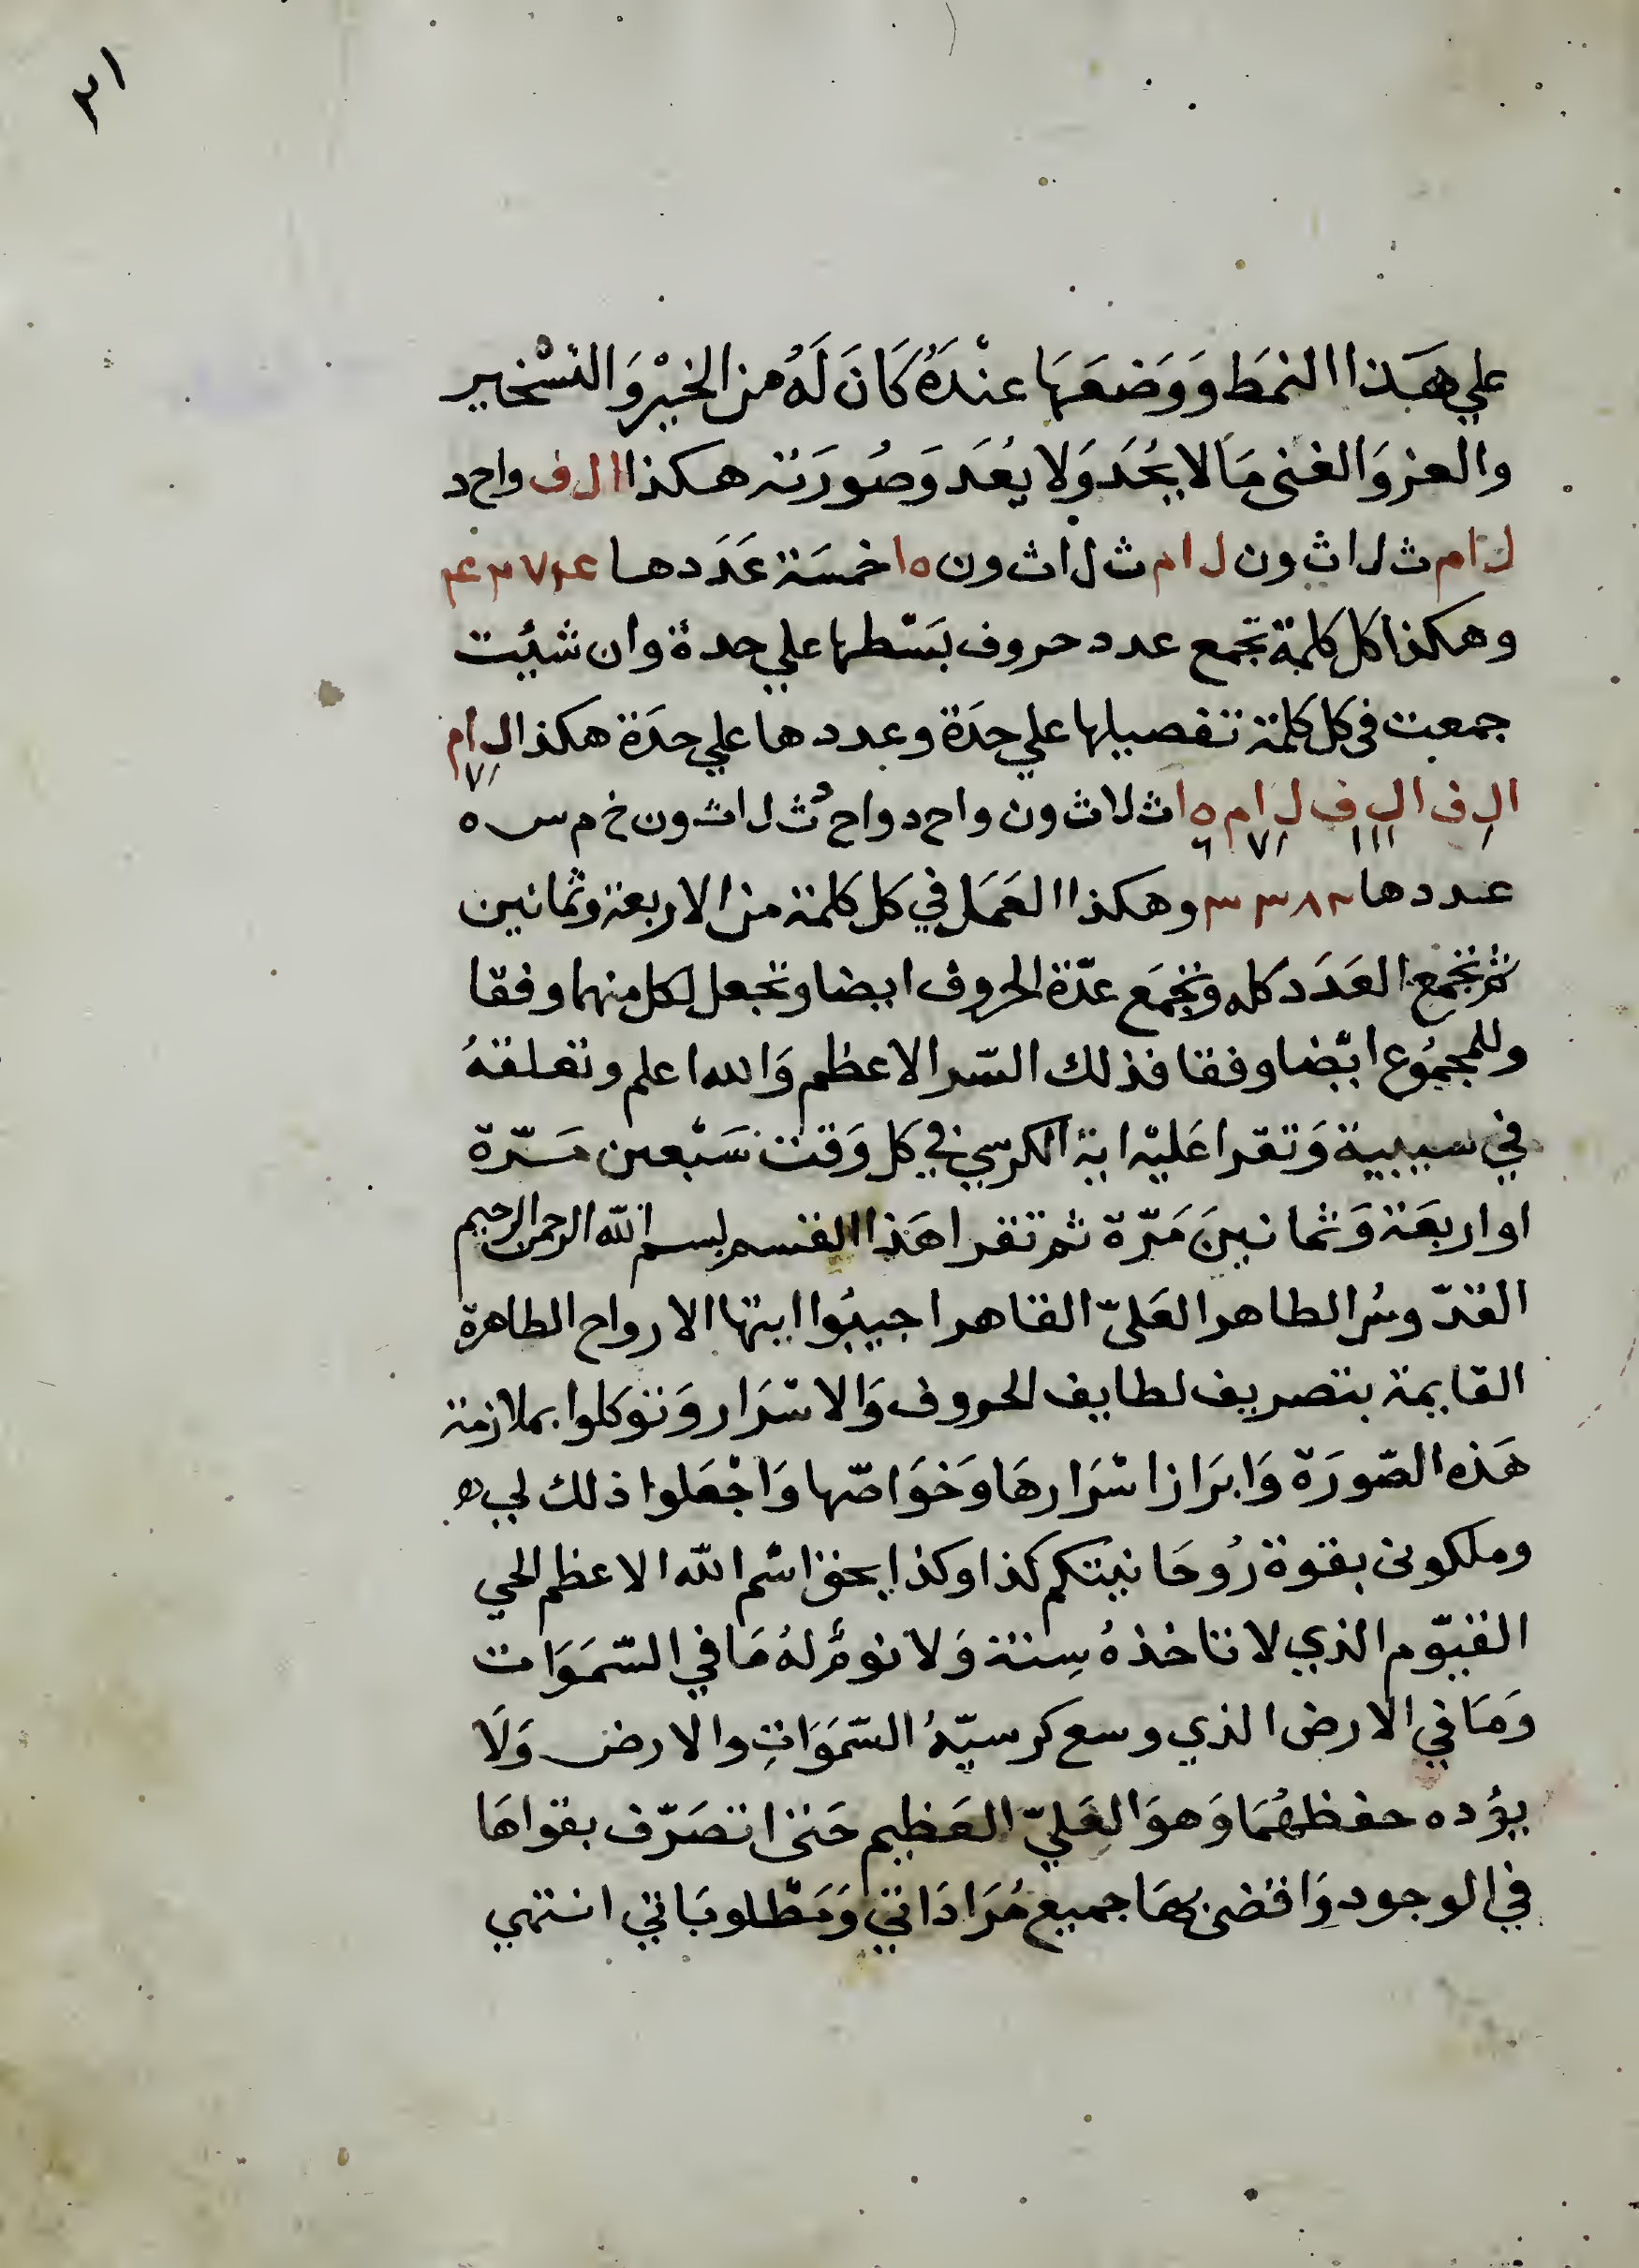 ٣١
علي هَذا النمَط وَوَضعَهَا عنْدَهُ كَانَ لَهُ من الخيْر وَالتسْخير
والعز وَالغنى مَالا يُحَد وَلا يعُدَ وَصُورَته هكذا ا ل ف واح د
ل ا م ث ل ا ث ون ل ا م ث ل ا ث ون ه ا خمسَة عَدَدها
وهكذا كل كلمة تجمع عدد حروف بَسْطها علي حدة وان شئت
جمعت في كل كلمة تفصيلها علي حِدَة وعددها علي حدَة هكذا ال ا م
٧١
ال ف ال ف ل ا م ه ا ث لا ث ون واح د واح د ث ل ا ث ون خ م س ه
٦ ٧١ ١١١ ١
عددها ٣٣٨٢ وهكذا العَمَل في كل كلمة من الاربعة وثمانين
ثم تجمع العَدَد كله وتجمَع عدّة الحروف ايضا وتجعل لكل منهما وفقا
وللمجمُوع ايْضا وفقا فذلك السّر الاعظم وَالله اعلم وتعلقهُ
في سبيبية وَتقرا عَليْه اية الكرسي في كل وَقت سَبْعين مَرّة
او اربعَة وَثمانينَ مَرّة ثم تقرا هَذا القسم بسم الله الرحمن الرحيم
القدّوسُ الطاهر العَليّ القاهر اجيبُوا ايتها الارواح الطاهرة
القايمة بتصريف لطايف الحروف وَالاسْرَار وَتوكلوا بملازمة
هَذه الصّورَة وَابرَاز اسْرَارهَا وَخوَاصّها وَاجْعَلوا ذلك لي
وملكوني بقوة رُوحَانيتكم كذا وكذا بحق اسْم الله الاعظم الحي
القيّوم الذي لا تاخذهُ سِنة وَلا نومٌ لهُ مَا في السّمَوَات
وَمَا في الارض الذي وسع كرسيّهُ السّمَوَاتِ والارض وَلَا
يؤده حفظهُمَا وَهوَ العَليّ العَظيم حَتى اتصَرّف بقواهَا
في الوجود وَاقضى بهَا جميع مُرَادَاتي وَمَطْلوبَاتي انتهي